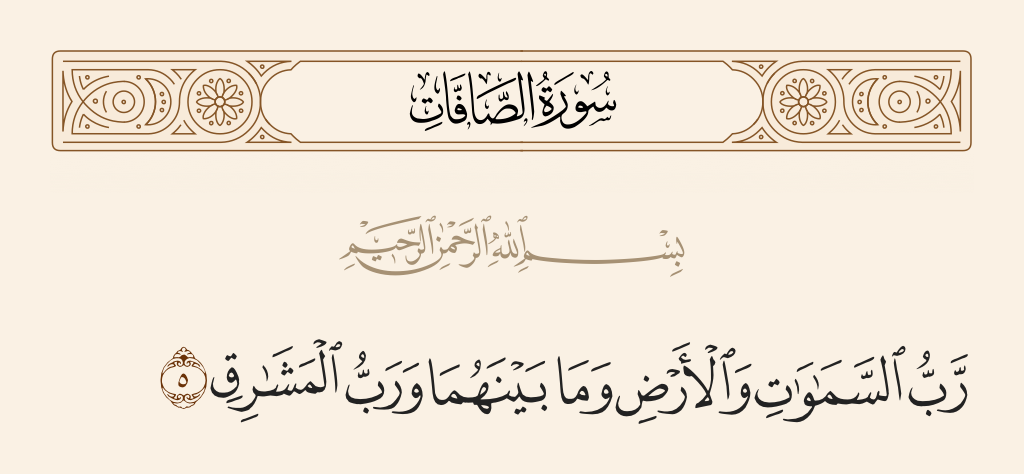 سُورَةُ الصَّافَّاتِ
بِسْمِ ٱللَّهِ ٱلرَّحْمَٰنِ ٱلرَّحِيمِ
رَّبُّ ٱلسَّمَٰوَٰتِ وَٱلْأَرْضِ وَمَا بَيْنَهُمَا وَرَبُّ ٱلْمَشَٰرِقِ ٥